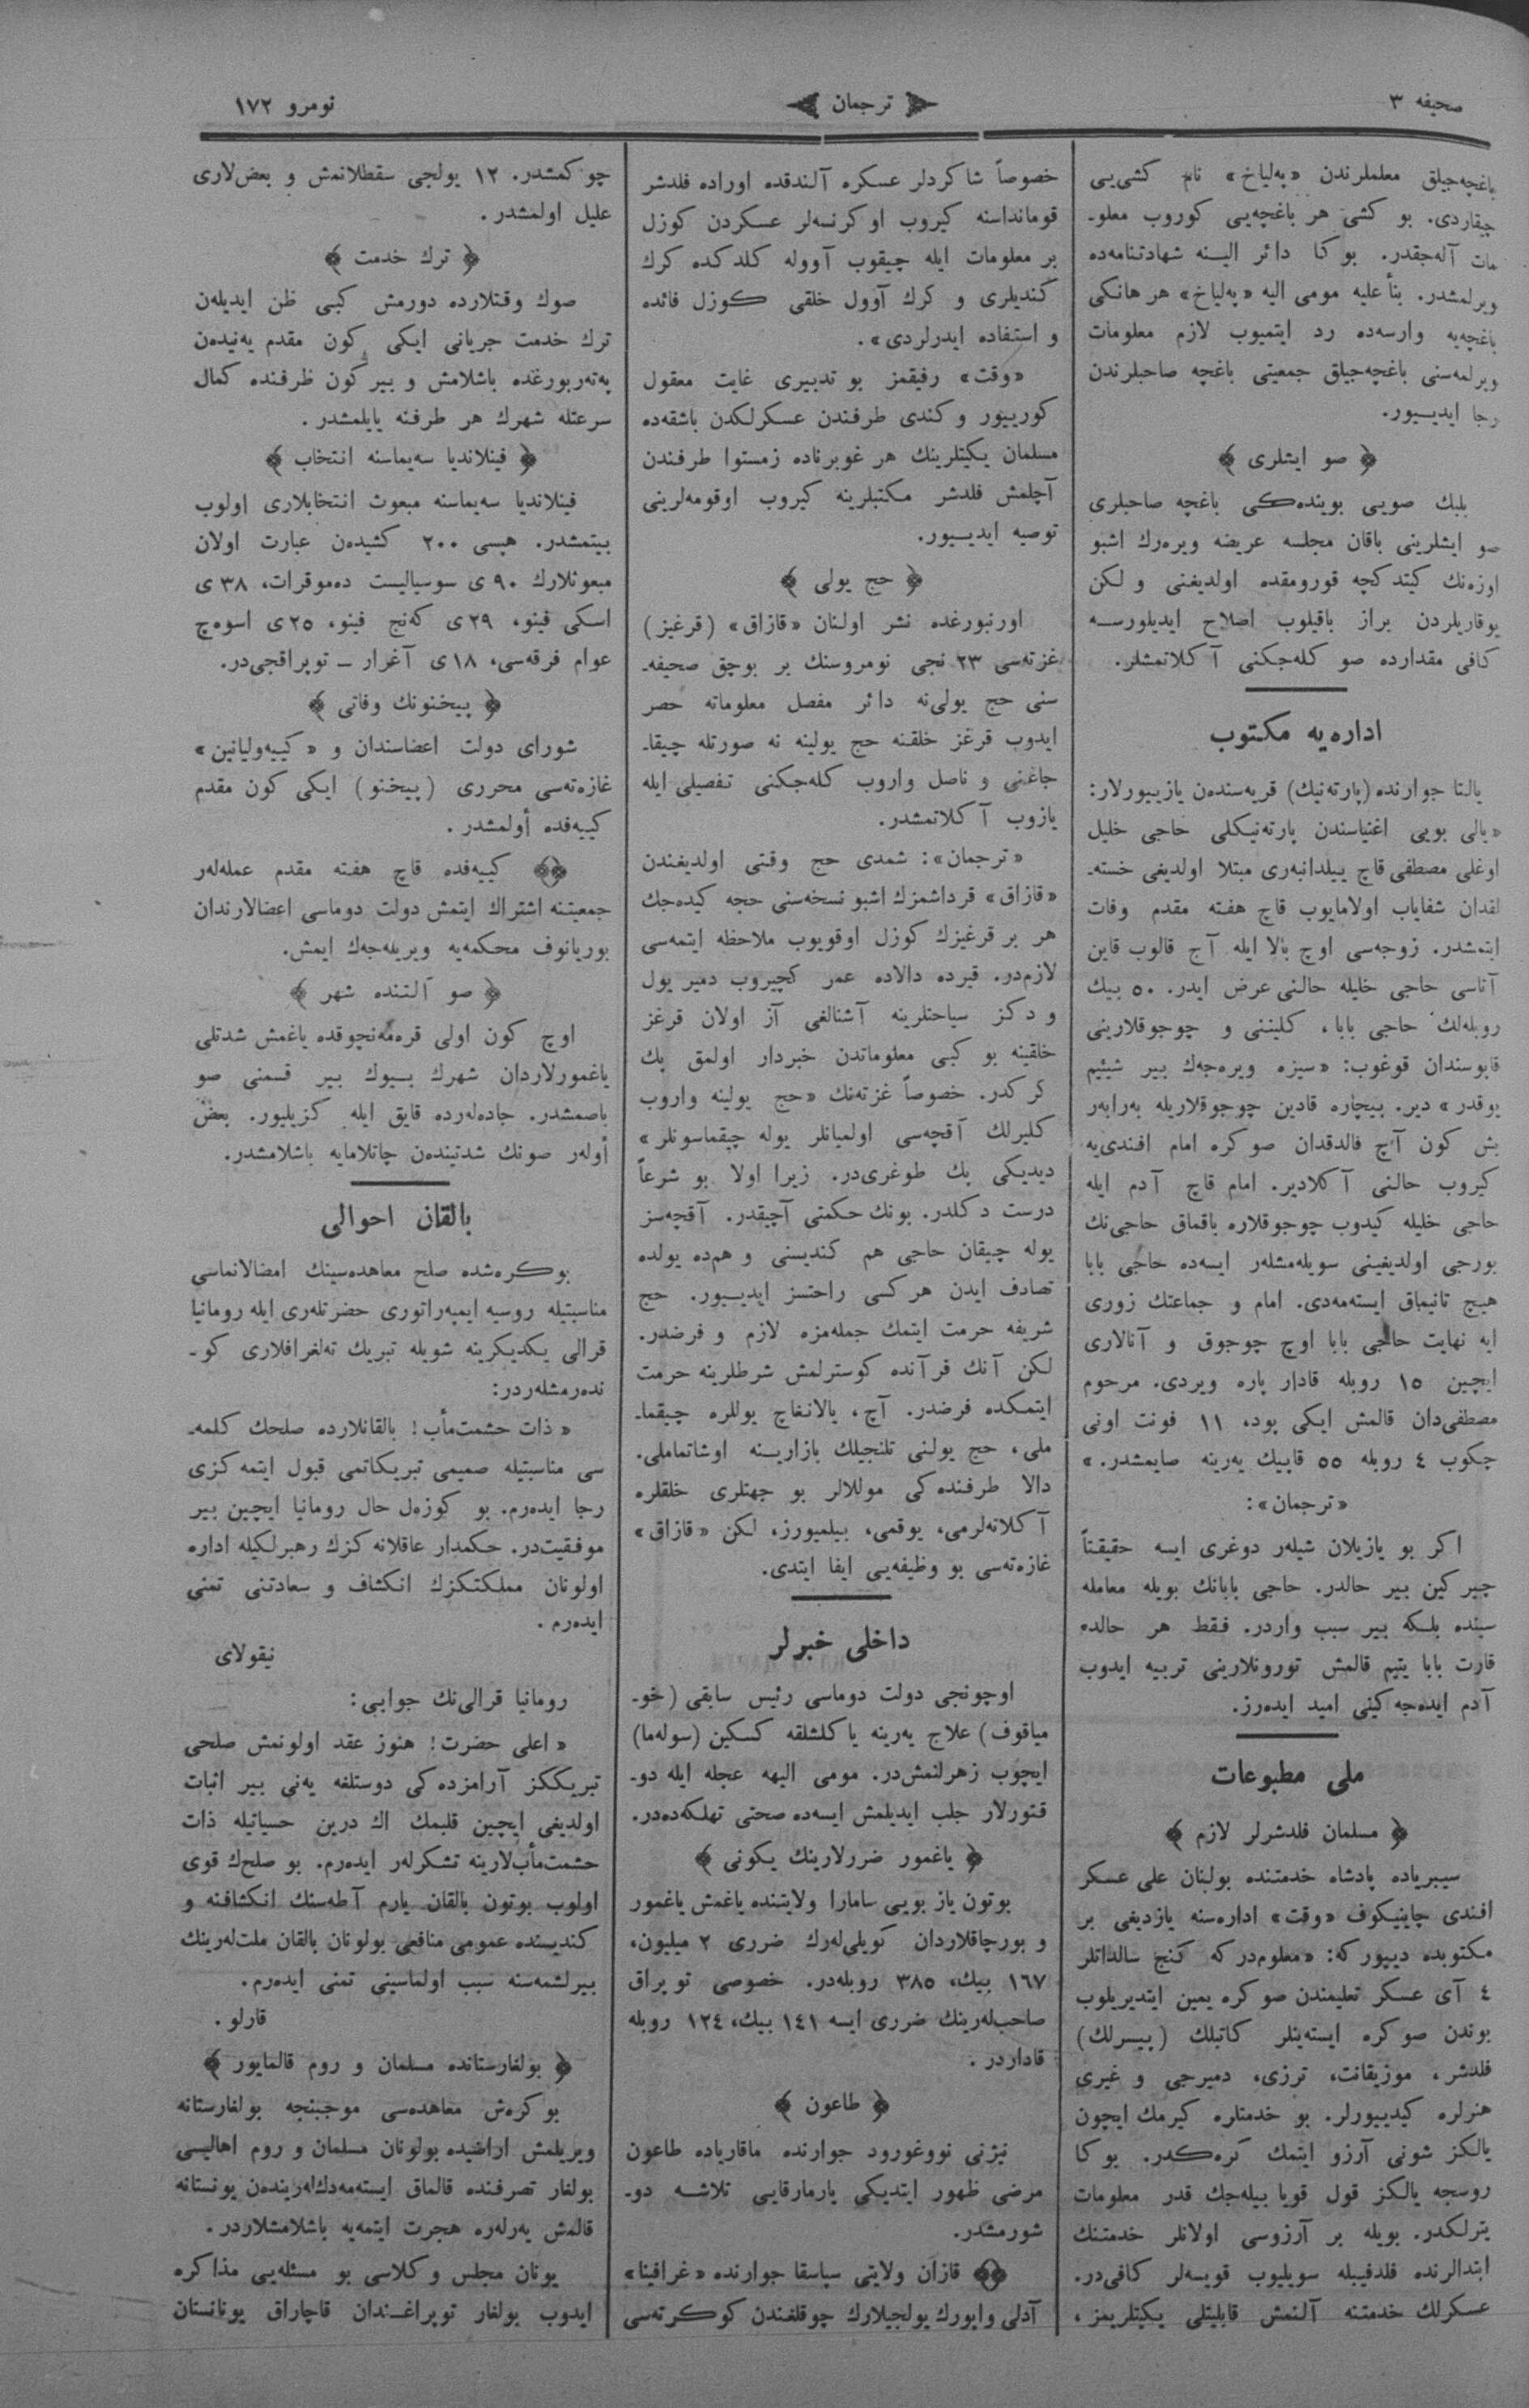 صحیفه ٣
ترجمان
نومرو ١٧٢
باغچه‌جیلق معلملرندن «په‌لیاخ» نام كشی‌یی
چیقاردی. بو كشی هر باغچه‌یی كوروب معلو‌ـ
مات آله‌جقدر. بوكا دائر الینه شهادتنامه‌ده
ویرلمشدر. بنأ علیه مومی الیه «په‌لیاخ» هر هانكی
باغچه‌یه وارسه‌ده رد ایتمیوب لازم معلومات
ویرلمه‌سنی باغچه‌جیلق جمعیتی باغچه صاحبلرندن
رجا ایدییور.
﴿ صو ایشلری ﴾
بلبك صویی بوینده‌كی باغچه صاحبلری
صو ایشلرینی باقان مجلسه عریضه ویره‌رك اشبو
اوزه‌نك كیتدكچه قورومقده اولدیغنی و لكن
یوقاریلردن براز باقیلوب اصلاح ایدیلورسه
كافی مقدارده صو كله‌جكنی آكلاتمشلر.
اداره‌یه مكتوب
یالتا جوارنده (پارته‌نیك) قریه‌سنده‌ن یازییورلار:
«یالی بویی اغنیاسندن پارته‌نیكلی حاجی خلیل
اوغلی مصطفی قاچ ییلدانبه‌ری مبتلا اولدیغی خسته‌ـ
لقدان شفایاب اولامایوب قاچ هفته مقدم وفات
ایتمشدر. زوجه‌سی اوچ بالا ایله آچ قالوب قاین
آتاسی حاجی خلیله حالنی عرض ایدر. ٥٠ بیك
روبله‌لك حاجی بابا، كلیننی و چوجوقلارینی
قابوسندان قوغوب: «سیزه ویره‌جه‌ك بیر شیئیم
یوقدر» دیر. بیچاره قادین چوجوقلاریله به‌رابه‌ر
بش كون آچ قالدقدان صوكره امام افندی‌یه
كیروب حالنی آكلادیر. امام قاچ آدم ایله
حاجی خلیله كیدوب چوجوقلاره باقماق حاجی‌نك
بورجی اولدیغینی سویله‌مشله‌ر ایسه‌ده حاجی بابا
هیچ تانیماق ایسته‌مه‌دی. امام و جماعتك زوری
ایه نهایت حاجی بابا اوچ چوجوق و آنالاری
ایچین ١٥ روبله قادار پاره ویردی. مرحوم
مصطفی‌دان قالمش ایكی پود، ١١ فونت اونی
چكوب ٤ روبله ٥٥ قاپیك یه‌رینه صایمشدر.»
«ترجمان»:
اكر بو یازیلان شیله‌ر دوغری ایسه حقیقتاً
چیركین بیر حالدر. حاجی بابانك بویله معامله
سینده بلكه بیر سبب واردر. فقط هر حالده
قارت بابا یتیم قالمش تورونلارینی تربیه ایدوب
آدم ایده‌جه‌كینی امید ایده‌رز.
ملی مطبوعات
﴿ مسلمان فلدشرلر لازم ﴾
سیبریاده پادشاه خدمتنده بولنان علی عسكر
افندی چاینیكوف «وقت» اداره‌سنه یازدیغی بر
مكتوبده دییور كه: «معلوم‌در كه كنج سالداتلر
٤ آی عسكر تعلیمندن صوكره یمین ایتدیریلوب
بوندن صوكره ایسته‌ینلر كاتبلك (پیسرلك)
فلدشر، موزیقانت، ترزی، دمیرجی و غیری
هنرلره كیدییورلر. بو خدمتلره كیرمك ایچون
یالكز شونی آرزو ایتمك كره‌كدر. بوكا
روسجه یالكز قول قویا بیله‌جك قدر معلومات
یترلكدر. بویله بر آرزوسی اولانلر خدمتنك
ابتدالرنده فلدفیبله سویلیوب قویسه‌لر كافی‌در.
عسكرلك خدمتنه آلنمش قابلیتلی یكیتلریمز،
خصوصاً شاكردلر عسكره آلندقده اوراده فلدشر
قومانداسنه كیروب اوكرنسه‌لر عسكردن كوزل
بر معلومات ایله چیقوب آووله كلدكده كرك
كندیلری و كرك آوول خلقی كوزل فائده
و استفاده ایدرلردی».
«وقت» رفیقمز بو تدبیری غایت معقول
كورییور و كندی طرفندن عسكرلكدن باشقه‌ده
مسلمان یكیتلرینك هر غوبرناده زمستوا طرفندن
آچلمش فلدشر مكتبلرینه كیروب اوقومه‌لرینی
توصیه ایدییور.
﴿ حج یولی ﴾
اورنبورغده نشر اولنان «قازاق» (قرغیز)
غزته‌سی ٢٣ نجی نومروسنك بر بوچق صحیفه‌ـ
سنی حج یولی‌نه دائر مفصل معلوماته حصر
ایدوب قرغز خلقنه حج یولینه نه صورتله چیقاـ
جاغنی و ناصل واروب كله‌جكنی تفصیلی ایله
یازوب آكلاتمشدر.
«ترجمان»: شمدی حج وقتی اولدیغندن
«قازاق» قرداشمزك اشبو نسخه‌سنی حجه كیده‌جك
هر بر قرغیزك كوزل اوقویوب ملاحظه ایتمه‌سی
لازم‌در. قیرده دالاده عمر كچیروب دمیر یول
و دكز سیاحتلرینه آشنالغی آز اولان قرغز
خلقینه بو كبی معلوماتدن خبردار اولمق پك
كركدر. خصوصاً غزته‌نك «حج یولینه واروب
كلیرلك آقچه‌سی اولمیانلر یوله چیقماسونلر»
دیدیكی پك طوغری‌در. زیرا اولا بو شرعاً
درست دكلدر. بونك حكمتی آچیقدر. آقچه‌سز
یوله چیقان حاجی هم كندیسنی و هم‌ده یولده
تصادف ایدن هركسی راحتسز ایدییور. حج
شریفه حرمت ایتمك جمله‌مزه لازم و فرضدر.
لكن آنك قرآنده كوسترلمش شرطلرینه حرمت
ایتمكده فرضدر. آچ، یالانغاچ یوللره چیقماـ
ملی، حج یولنی تلنجیلك بازارینه اوشاتماملی.
دالا طرفنده‌كی موللالر بو جهتلری خلقلره
آكلاته‌لرمی، یوقمی، بیلمیورز، لكن «قازاق»
غازه‌ته‌سی بو وظیفه‌یی ایفا ایتدی.
داخلی خبرلر
اوچونجی دولت دوماسی رئیس سابقی (خوـ
میاقوف) علاج یه‌رینه یاكلشلقه كسكین (سوله‌ما)
ایچوب زهرلنمش‌در. مومی الیهه عجله ایله دوـ
قتورلار جلب ایدیلمش ایسه‌ده صحتی تهلكه‌ده‌در.
﴿ یاغمور ضررلارینك یكونی ﴾
بوتون یاز بویی سامارا ولایتنده یاغمش یاغمور
و بورچاقلاردان كویلی‌له‌رك ضرری ٢ میلیون،
١٦٧ بیك، ٣٨٥ روبله‌در. خصوصی توپراق
صاحب‌له‌رینك ضرری ایسه ١٤١ بیك، ١٢٤ روبله
قاداردر.
﴿ طاعون ﴾
نیژنی نووغورود جوارنده ماقاریاده طاعون
مرضی ظهور ایتدیكی یارمارقایی تلاشه دوـ
شورمشدر.
قازان ولایتی سپاسقا جوارنده «غرافینا»
آدلی وابورك یولجیلارك چوقلغندن كوكرته‌سی
چوكمشدر. ١٢ یولجی سقطلانمش و بعض‌لاری
علیل اولمشدر.
﴿ ترك خدمت ﴾
صوك وقتلارده دورمش كبی ظن ایدیله‌ن
ترك خدمت جریانی ایكی كون مقدم یه‌نیده‌ن
په‌ته‌ربورغده باشلامش و بیر كون ظرفنده كمال
سرعتله شهرك هر طرفنه یایلمشدر.
﴿ فینلاندیا سه‌یماسنه انتخاب ﴾
فینلاندیا سه‌یماسنه مبعوث انتخابلاری اولوب
بیتمشدر. هپسی ٢٠٠ كشیده‌ن عبارت اولان
مبعوثلارك ٩٠ی سوسیالیست ده‌موقرات، ٣٨ی
اسكی فینو، ٢٩ی كه‌نج فینو، ٢٥ی اسوه‌ج
عوام فرقه‌سی، ١٨ی آغرار ـ توپراقجی‌در.
﴿ پیخنونك وفاتی ﴾
شورای دولت اعضاسندان و «كییه‌ولیانین»
غازه‌ته‌سی محرری (پیخنو) ایكی كون مقدم
كییه‌فده أولمشدر.
كییه‌فده قاچ هفته مقدم عمله‌له‌ر
جمعیتنه اشتراك ایتمش دولت دوماسی اعضالارندان
بوریانوف محكمه‌یه ویریله‌جه‌ك ایمش.
﴿ صو آلتنده شهر ﴾
اوچ كون اولی قره‌مه‌نچوقده یاغمش شدتلی
یاغمورلاردان شهرك بیوك بیر قسمنی صو
باصمشدر. جاده‌له‌رده قایق ایله كزیلیور. بعض
أوله‌ر صونك شدتینده‌ن چاتلامایه باشلامشدر.
بالقان احوالی
بوكره‌شده صلح معاهده‌سینك امضالانماسی
مناسبتیله روسیه ایمپه‌راتوری حضرتله‌ری ایله رومانیا
قرالی یكدیكرینه شویله تبریك ته‌لغرافلاری كوـ
نده‌رمشله‌ردر:
«ذات حشمت‌مأب! بالقانلارده صلحك كلمه‌ـ
سی مناسبتیله صمیمی تبریكاتمی قبول ایتمه‌كزی
رجا ایده‌رم. بو كوزه‌ل حال رومانیا ایچین بیر
موفقیت‌در. حكمدار عاقلانه كزك رهبرلكیله اداره
اولونان مملكتكزك انكشاف و سعادتنی تمنی
ایده‌رم.
نیقولای
رومانیا قرالی‌نك جوابی:
«اعلی حضرت! هنوز عقد اولونمش صلحی
تبریككز آرامزده‌كی دوستلغه یه‌نی بیر اثبات
اولدیغی ایچین قلبمك اك درین حسیاتیله ذات
حشمت‌مأب‌لارینه تشكرله‌ر ایده‌رم. بو صلح‌ك قوی
اولوب بوتون بالقان یارم آطه‌سنك انكشافنه و
كندیسنده عمومی منافعی بولونان بالقان ملت‌له‌رینك
بیرلشمه‌سنه سبب اولماسینی تمنی ایده‌رم.
قارلو.
﴿ بولغارستانده مسلمان و روم قالمایور ﴾
بوكره‌ش معاهده‌سی موجبنجه بولغارستانه
ویریلمش اراضیده بولونان مسلمان و روم اهالیسی
بولغار تصرفنده قالماق ایسته‌مه‌دك‌له‌رینده‌ن یونستانه
قالمش یه‌رله‌ره هجرت ایتمه‌یه باشلامشلاردر.
یونان مجلس وكلاسی بو مسئله‌یی مذاكره
ایدوب بولغار توپراغندان قاچاراق یونانستان